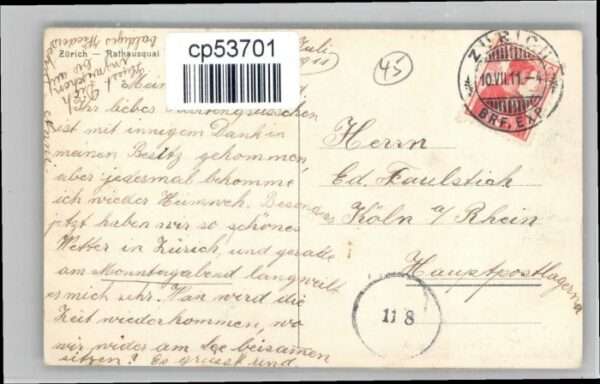 Zürich — Rathausquai
cp53701
Juli
1911
45
ZÜRICH
10.VII.11.–4
BRF. EXP.
Mein
Ihr liebes
ist mit innigem Dank in
meinen Besitz gekommen,
aber jedesmal bekomme
ich wieder Heimweh. Besonders
jetzt haben wir so schönes
Wetter in Zürich, und gerade
am Montagabend langweilt
es mich sehr. Wann werd die
Zeit wiederkommen, wo
wir wider am See beisamen
sitzen? Es grüsst und
Herrn
Ed. Faulstich
Köln a/Rhein
Hauptpostlagernd
11 8
baldiges Wiedersehen